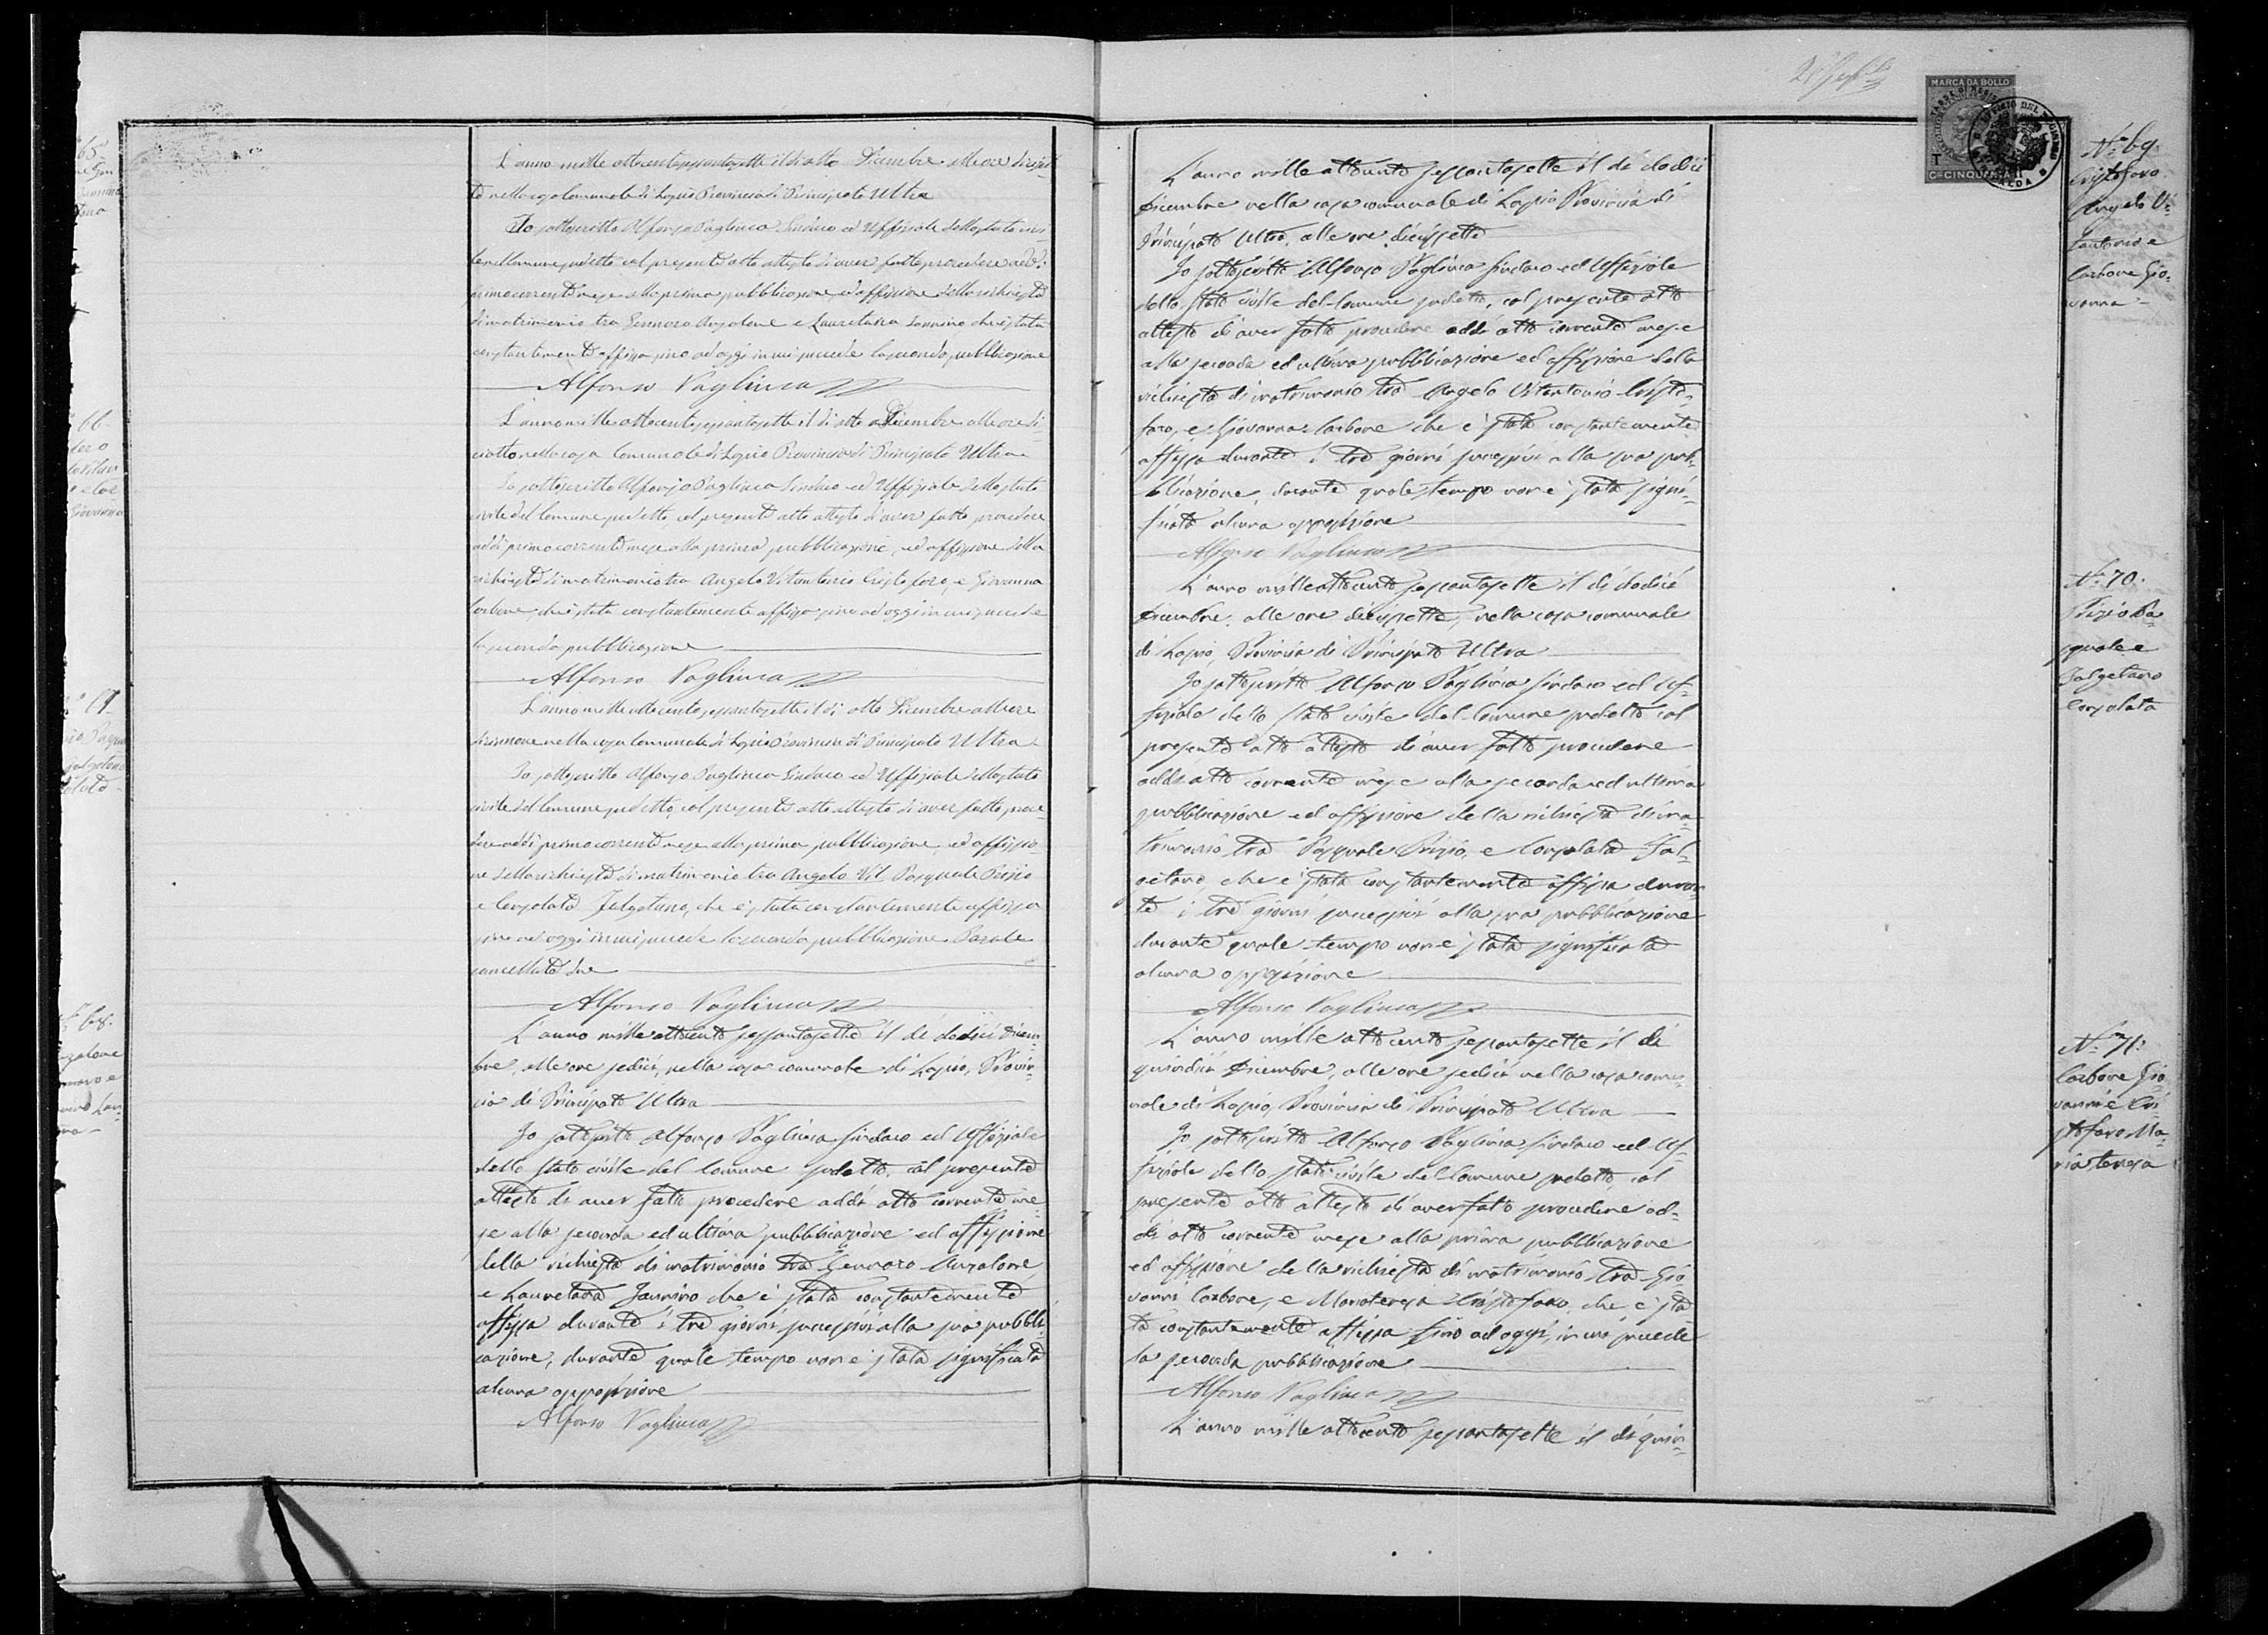 N.° 65
66
L'anno mille ottocentosessantasette il dì otto Dicembre alle ore diciset
te nella casa Comunale di Lapio Provincia di Principato Ultra
Io sottoscritto Alfonso Vagliuca Sindaco ed Uffiziale dello stato civi
le del Comune sudetto col presente atto attesto di aver fatto procedere addì
primo corrente mese alla prima pubblicazione ed affissione della richiesta
di matrimonio tra Gennaro Anzalone e Lauretana Iannino che è stata
constantemente affissa sino ad oggi in cui succede la seconda pubblicazione
Alfonso Vagliuca
L'anno mille ottocentosessantasette il dì otto Dicembre alle ore di
ciotto nella casa Comunale di Lapio Provincia di Principato Ultra
Io sottoscritto Alfonso Vagliuca Sindaco ed Uffiziale dello stato
civile del Comune sudetto, col presente atto attesto d'aver fatto procedere
addì primo corrente mese alla prima pubblicazione, ed affissione della
richiesta di matrimonio tra Angelo Vitantonio Cristofaro, e Giovanna
Carbone, che è stata constantemente affissa sino ad oggi in cui succede
la seconda pubblicazione
Alfonso Vagliuca
L'anno mille ottocentosessantasette il dì otto Dicembre alle ore
diecinnove nella casa Comunale di Lapio Provincia di Principato Ultra
Io sottoscritto Alfonso Vagliuca Sindaco ed Uffiziale dello stato
civile del Comune sudetto, col presente atto attesto di aver fatto proce-
dere addì primo corrente mese alla prima pubblicazione, ed affissio
ne della richiesta di matrimonio tra Angelo Vit Pasquale Pirzio
e Consolata Falgetano, che è stata constantemente affissa
sino ad oggi in cui succede la seconda pubblicazione. Parole
cancellate due
Alfonso Vagliuca
N.° 68.
L'anno mille ottocento sessantasette il dì dodici Dicem-
bre, alle ore sedici, nella casa comunale di Lapio, Provin-
cia di Principato Ultra
Io sottoscritto Alfonso Vagliuca Sindaco ed Uffiziale
dello stato civile del Comune sudetto, col presente
attesto di aver fatto procedere addì otto corrente me-
se alla seconda ed ultima pubblicazione ed affissione
della richiesta di matrimonio tra Gennaro Anzalone
e Lauretana Iannino che è stata constantemente
affissa durante i tre giorni successivi alla sua pubbli-
cazione, durante quale tempo non è stata significata
alcuna opposizione
Alfonso Vagliuca
MARCA DA BOLLO
C. CINQUANTA
N.° 69.
Cristofaro
Angelo Vi-
tantonio e
Carbone Gio-
vanna
L'anno mille ottocento sessantasette il dì dodici
Dicembre nella casa comunale di Lapio Provincia di
Principato Ultra, alle ore diecissette
Io sottoscritto Alfonso Vagliuca Sindaco ed Uffiziale
dello stato civile del Comune sudetto, col presente atto
attesto di aver fatto procedere addì otto corrente mese
alla seconda ed ultima pubblicazione ed affissione della
richiesta di matrimonio tra Angelo Vitantonio Cristo-
faro, e Giovanna Carbone che è stata constantemente
affissa durante i tre giorni successivi alla sua pub-
blicazione, durante quale tempo non è stata signi-
ficata alcuna opposizione
Alfonso Vagliuca
N.° 70.
Pirzio Pa-
squale e
Falgetano
Consolata
L'anno mille ottocento sessantasette il dì dodici
Dicembre, alle ore diecissette, nella casa comunale
di Lapio, Provincia di Principato Ultra
Io sottoscritto Alfonso Vagliuca Sindaco ed Uf-
fiziale dello stato civile del Comune sudetto col
presente atto attesto di aver fatto procedere
addì otto corrente mese alla seconda ed ultima
pubblicazione ed affissione della richiesta di ma-
trimonio tra Pasquale Pirzio, e Consolata Fal-
getano che è stata constantemente affissa duran-
te i tre giorni successivi alla sua pubblicazione
durante quale tempo non è stata significata
alcuna opposizione
Alfonso Vagliuca
N.° 71.
Carbone Gio
vanni e Cri
stofaro Ma-
ria teresa
L'anno mille ottocento sessantasette il dì
quindici Dicembre, alle ore sedici nella casa comu-
nale di Lapio, Provincia di Principato Ultra
Io sottoscritto Alfonso Vagliuca Sindaco ed Uf-
fiziale dello stato civile del Comune sudetto, col
presente atto attesto di aver fatto procedere ad-
dì otto corrente mese alla prima pubblicazione
ed affissione della richiesta di matrimonio tra Gio-
vanni Carbone, e Mariateresa Cristofaro, che è sta-
ta constantemente affissa sino ad oggi, in cui succede
la seconda pubblicazione
Alfonso Vagliuca
L'anno mille ottocento sessantasette il dì quin-